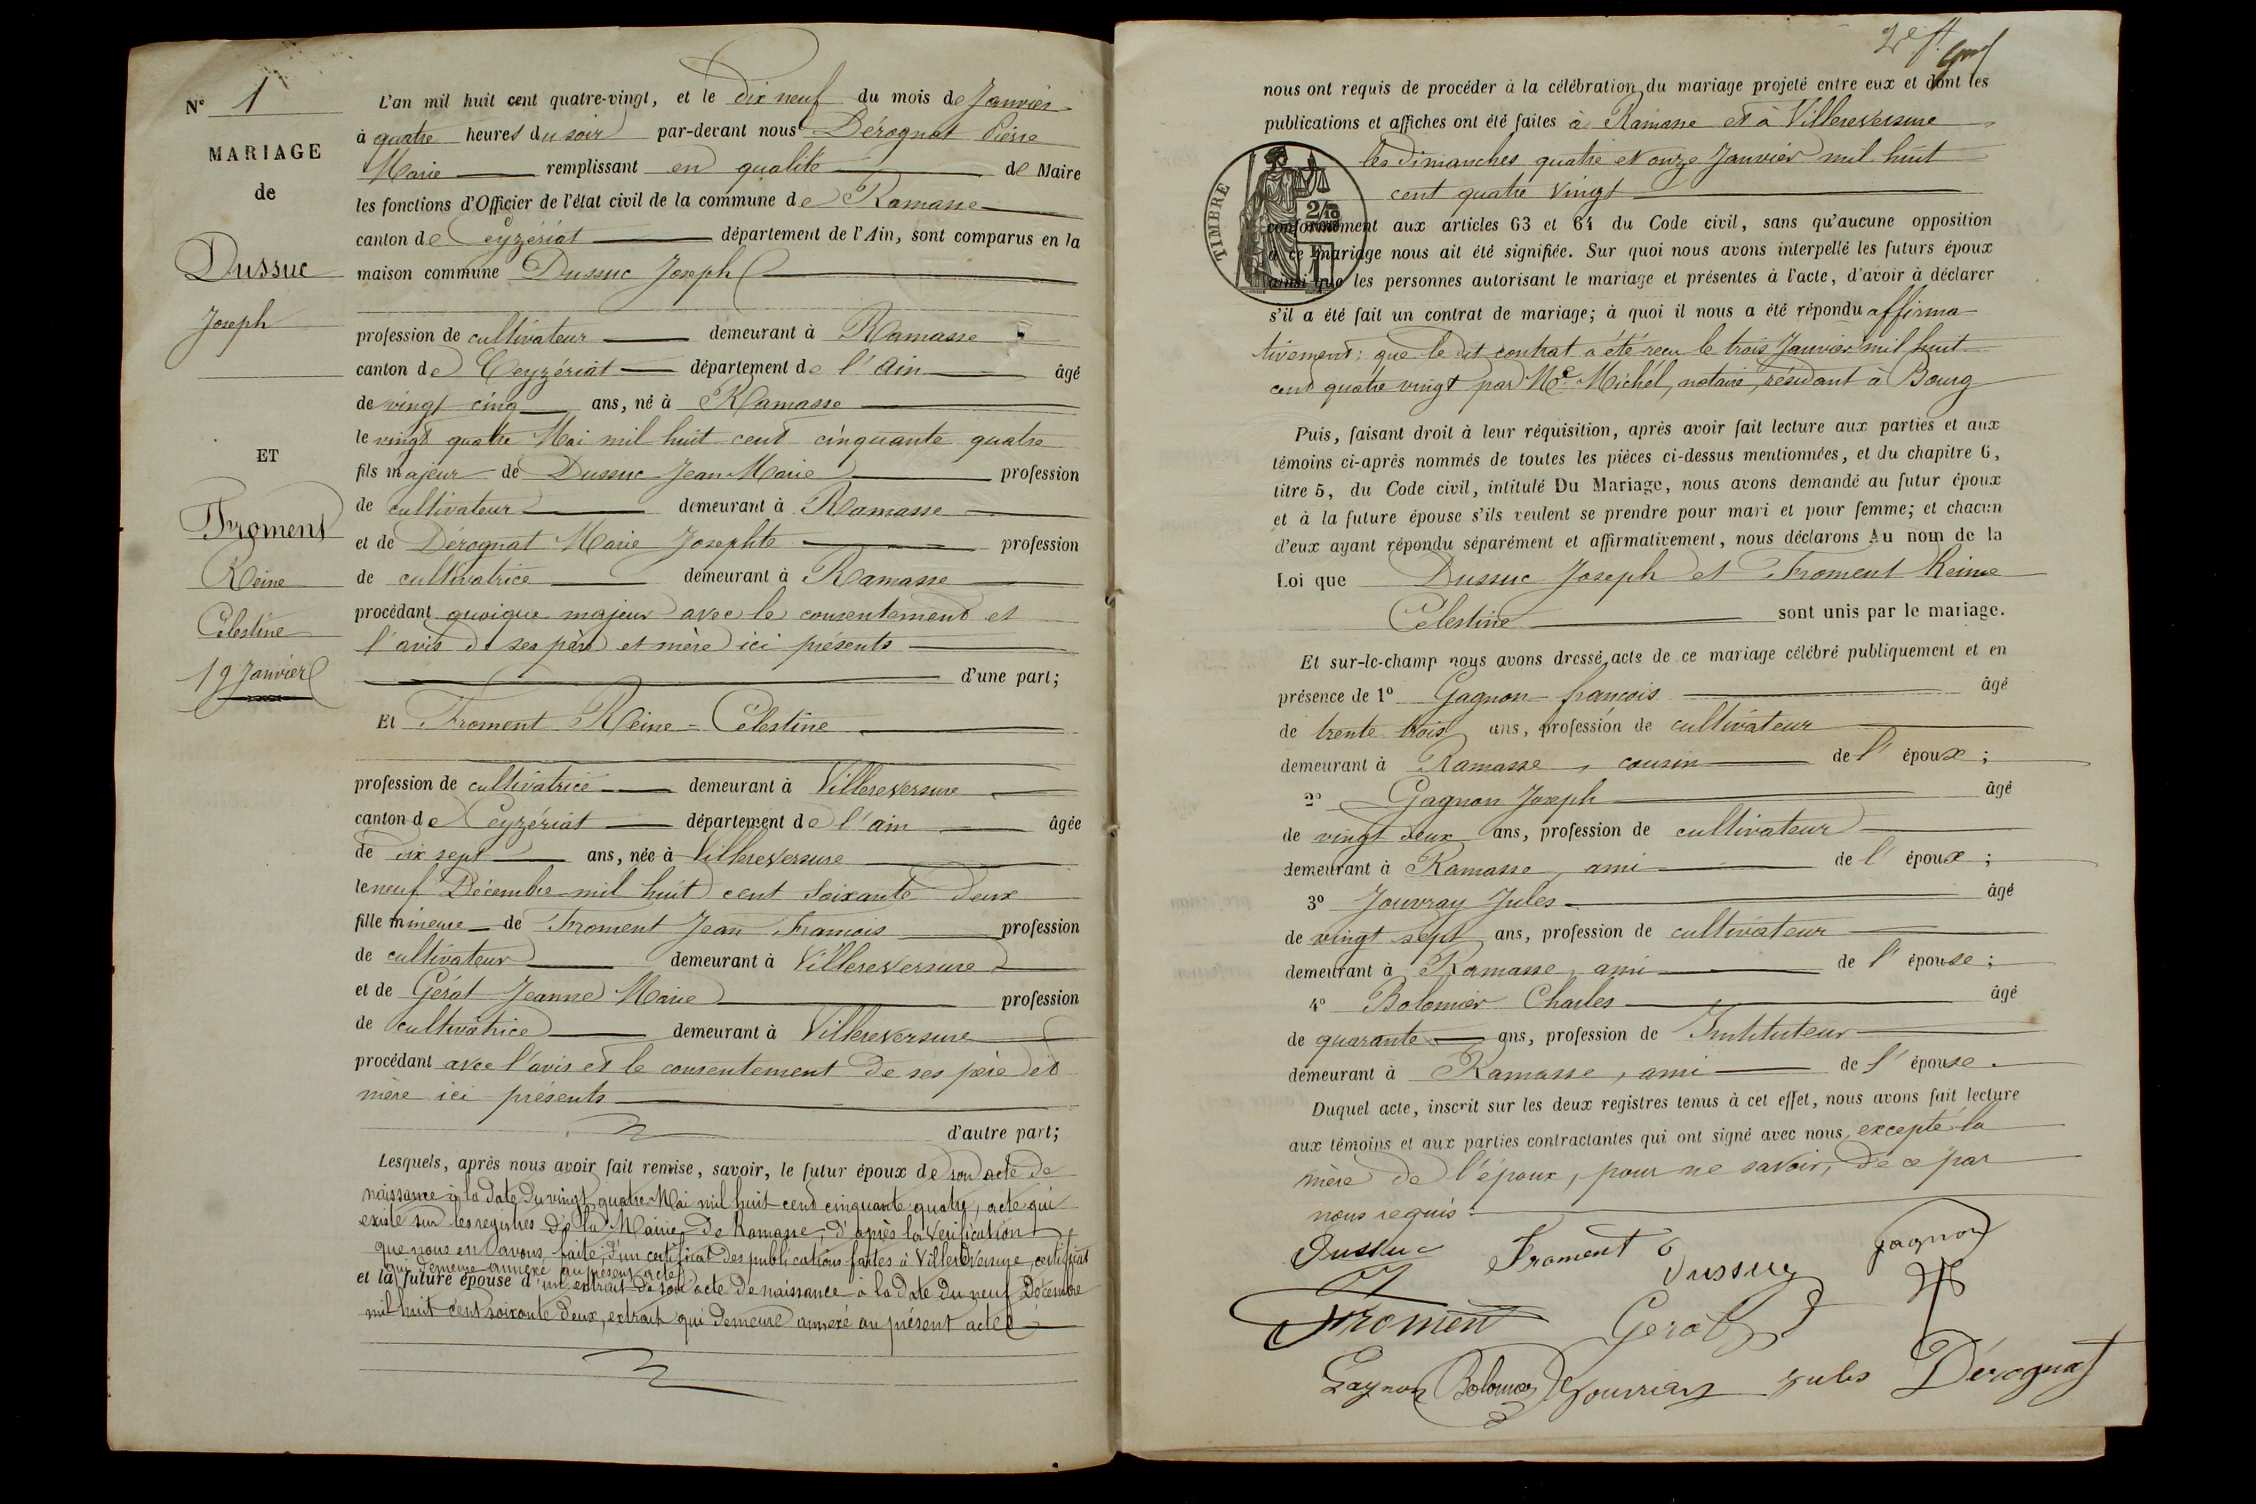 N° 1
MARIAGE
de
Dussuc
Joseph
ET
Froment
Reine
Célestine
19 Janvier
L'an mil huit cent quatre-vingt, et le dix neuf du mois de Janvier
à quatre heures du soir par-devant nous Dérognat Pierre
Marie remplissant en qualité de Maire
les fonctions d'Officier de l'état civil de la commune de Ramasse
canton de Ceyzériat département de l'Ain, sont comparus en la
maison commune Dussuc Joseph
profession de cultivateur demeurant à Ramasse
canton de Ceyzériat département de l'Ain âgé
de vingt cinq ans, né à Ramasse
le vingt quatre Mai mil huit cent cinquante quatre
fils majeur de Dussuc Jean Marie profession
de cultivateur demeurant à Ramasse
et de Dérognat Marie Josephte profession
de cultivatrice demeurant à Ramasse
procédant quoique majeur avec le consentement et
l'avis de ses père et mère ici présents
d'une part;
Et Froment Reine-Célestine
profession de cultivatrice demeurant à Villereversure
canton de Ceyzériat département de l'ain âgée
de dix sept ans, née à Villereversure
le neuf Décembre mil huit cent soixante deux
fille mineure de Froment Jean François profession
de cultivateur demeurant à Villereversure
et de Gérat Jeanne Marie profession
de cultivatrice demeurant à Villereversure
procédant avec l'avis et le consentement de ses père et
mère ici présents
d'autre part;
Lesquels, après nous avoir fait remise, savoir, le futur époux de son acte de
naissance à la date du vingt quatre Mai mil huit cent cinquante quatre, acte qui
existe sur les registres de la Mairie de Ramasse, d'après la vérification
que nous en avons faite; d'un certificat des publications faites à Villereversure, certificat
qui demeure annexé au présent acte
et la future épouse d'un extrait de son acte de naissance à la date du neuf Décembre
mil huit cent soixante deux, extrait qui demeure annexé au présent acte
nous ont requis de procéder à la célébration du mariage projeté entre eux et dont les
publications et affiches ont été faites à Ramasse et à Villereversure
les dimanches quatre et onze Janvier mil huit
cent quatre vingt
TIMBRE
2/10
conformément aux articles 63 et 64 du Code civil, sans qu'aucune opposition
à ce mariage nous ait été signifiée. Sur quoi nous avons interpellé les futurs époux
ainsi que les personnes autorisant le mariage et présentes à l'acte, d'avoir à déclarer
s'il a été fait un contrat de mariage; à quoi il nous a été répondu affirma
tivement; que le dit contrat a été reçu le trois Janvier mil huit
cent quatre vingt par Me Michel, notaire, résidant à Bourg
Puis, faisant droit à leur réquisition, après avoir fait lecture aux parties et aux
témoins ci-après nommés de toutes les pièces ci-dessus mentionnées, et du chapitre 6,
titre 5, du Code civil, intitulé Du Mariage, nous avons demandé au futur époux
et à la future épouse s'ils veulent se prendre pour mari et pour femme; et chacun
d'eux ayant répondu séparément et affirmativement, nous déclarons Au nom de la
Loi que Dussuc Joseph et Froment Reine
Célestine sont unis par le mariage.
Et sur-le-champ nous avons dressé acte de ce mariage célébré publiquement et en
présence de 1° Gagnon françois âgé
de trente trois ans, profession de cultivateur
demeurant à Ramasse, cousin de l'époux;
2° Gagnon Joseph âgé
de vingt deux ans, profession de cultivateur
demeurant à Ramasse, ami de l'époux;
3° Jouvray Jules âgé
de vingt sept ans, profession de cultivateur
demeurant à Ramasse, ami de l'épouse;
4° Bolomier Charles âgé
de quarante ans, profession de Instituteur
demeurant à Ramasse, ami de l'épouse.
Duquel acte, inscrit sur les deux registres tenus à cet effet, nous avons fait lecture
aux témoins et aux parties contractantes qui ont signé avec nous, excepté la
mère de l'époux, pour ne savoir, de ce par
nous requis.
Dussuc Froment Dussuc gagnon
Froment Gerat
Gagnon Bolomier Jouvray Jules Dérognat